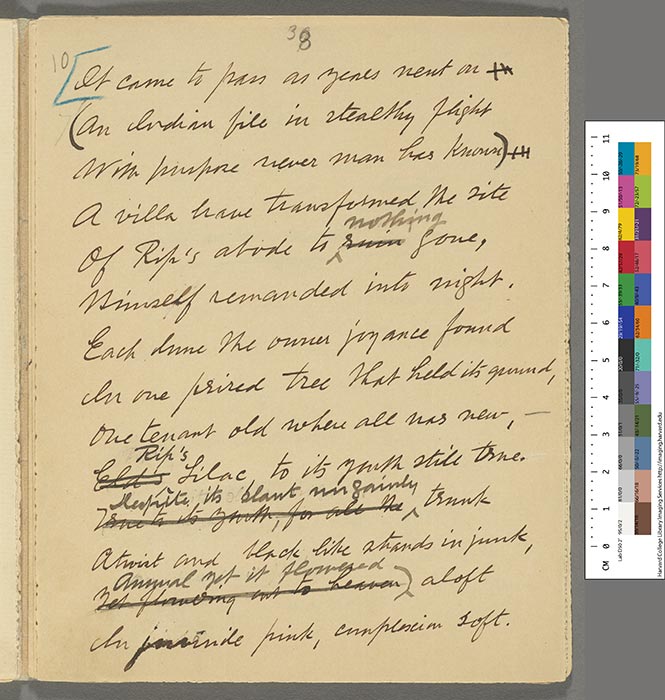 38
10
It came to pass as years went on
(An Indian file in stealthy flight
With purpose never man has known)
A villa brave transformed the site
nothing
Of Rip's abode to ruin gone,
Himself remanded into night.
Each June the owner joyance found
In one prized tree that held its ground,
One tenant old where all was new, —
Rip's
Lilac, to its youth still true.
Despite its slant ungainly
True to its youth, for all the trunk
Atwist and black like strands in junk,
Annual yet it flowered
Yet flowering out to heaven aloft
In juvenile pink, complexion soft.
CM 0 1 2 3 4 5 6 7 8 9 10 11
Harvard College Library Imaging Services http://imaging.harvard.edu